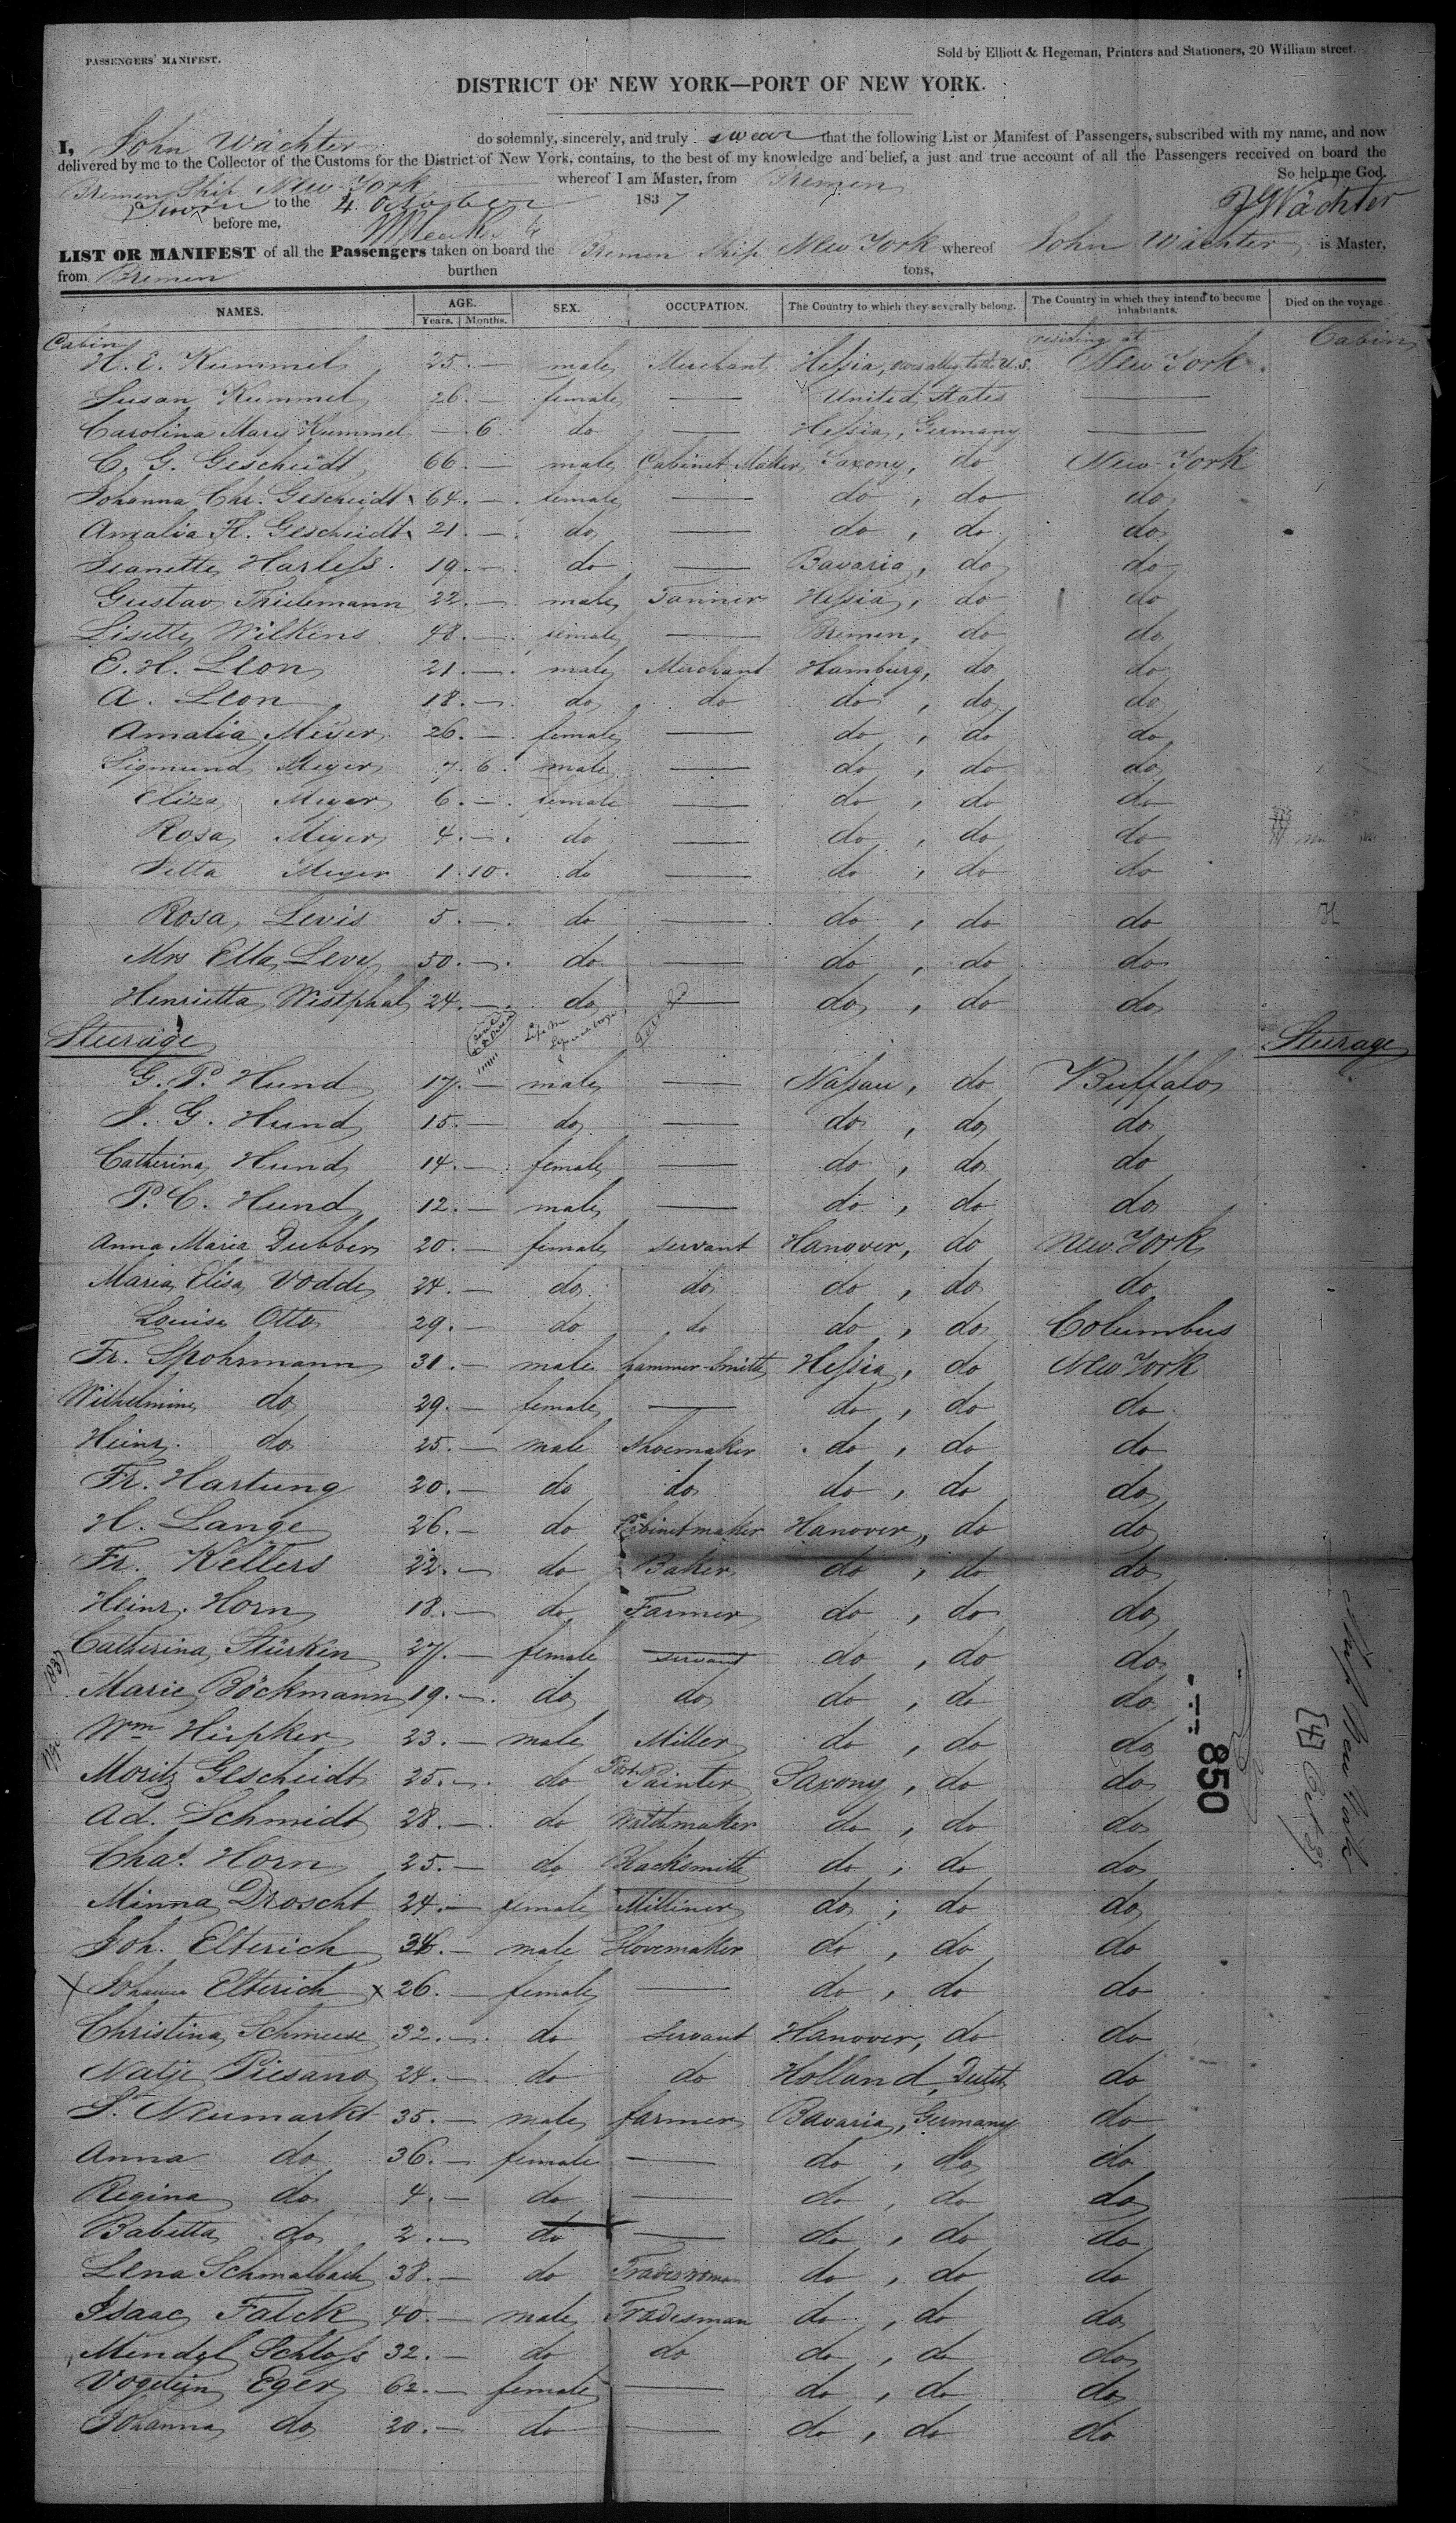 PASSENGERS' MANIFEST.
Sold by Elliott & Hegeman, Printers and Stationers, 20 William street.
DISTRICT OF NEW YORK—PORT OF NEW YORK.
I, John Wächter do solemnly, sincerely, and truly swear that the following List or Manifest of Passengers, subscribed with my name, and now
delivered by me to the Collector of the Customs for the District of New York, contains, to the best of my knowledge and belief, a just and true account of all the Passengers received on board the
Bremen Ship New-York whereof I am Master, from Bremen So help me God.
Sworn to the 4 October 1837 J Wächter
before me,
LIST OR MANIFEST of all the Passengers taken on board the Bremen Ship New York whereof John Wächter is Master,
from Bremen burthen tons,
NAMES. AGE. Years. Months. SEX. OCCUPATION. The Country to which they severally belong. The Country in which they intend to become inhabitants. Died on the voyage
Cabin residing at Cabin
H. E. Kummel 25. — male Merchant Hessia, owes alleg. to the U.S. New York
Susan Kummel 26. — female — United States —
Carolina Mary Kummel — 6. do — Hessia, Germany —
C. G. Gescheidt 66. — male Cabinet Maker Saxony, do New-York
Johanna Chr. Gescheidt 64. — female — do, do do
Amalia H. Gescheidt 21. — do — do, do do
Jeanette Harless. 19. — do — Bavaria, do do
Gustav Thielemann 22. — male Tanner Hessia, do do
Lisette Wilkens 48. — female — Bremen, do do
E. H. Leon 21. — male Merchant Hamburg, do do
A. Leon 18. — do do do, do do
Amalia Meyer 26. — female — do, do do
Sigmund Meyer 7. 6. male — do, do do
Eliza Meyer 6. — female — do, do do
Rosa Meyer 4. — do — do, do do
Jetta Meyer 1. 10. do — do, do do
Rosa Levis 5. — do — do, do do
Mrs Etta Levy 50. — do — do, do do
Henrietta Westphal 24. — do — do, do do
Steerage Steerage
G. P. Hund 17. — male — Nassau, do Buffalo
J. G. Hund 15. — do — do, do do
Catherina Hund 14. — female — do, do do
P. C. Hund 12. — male — do, do do
Anna Maria Dubber 20. — female servant Hanover, do New York
Maria Elisa Vodde 24. — do do do, do do
Louise Otto 29. — do do do, do Columbus
Fr. Spohrmann 31. — male hammer-Smith Hessia, do New York
Wilhelmine do 29. — female — do, do do
Heinr. do 25. — male shoemaker do, do do
Fr. Hartung 20. — do do do, do do
H. Lange 26. — do Cabinetmaker Hanover, do do
Fr. Kellers 22. — do Baker do, do do
Heinr. Horn 18. — do Farmer do, do do
Catherina Stürken 27. — female servant do, do do
Marie Böckmann 19. — do do do, do do
Wm Hüpker 23. — male Miller do, do do
Moritz Gescheidt 25. — do Port Painter Saxony, do do
Ad. Schmidt 28. — do Watchmaker do, do do
Chas. Horn 25. — do Blacksmith do, do do
Minna Droscht 24. — female Milliner do, do do
Joh. Elterich 36. — male Glovemaker do, do do
x Johanna Elterich x 26. — female — do, do do
Christina Schmeuse 32. — do servant Hanover, do do
Natje Piesano 24. — do do Holland, Dutch do
S. Neumarkt 35. — male farmer Bavaria, Germany do
Anna do 36. — female — do, do do
Regina do 4. — do — do, do do
Babetta do 2. — do — do, do do
Lena Schmalbach 38. — do Tradeswoman do, do do
Isaac Falck 40. — male Tradesman do, do do
Mendel Schloss 32. — do do do, do do
Vogelein Eger 62. — female — do, do do
Johanna do 20. — do — do, do do
850
Ship New York